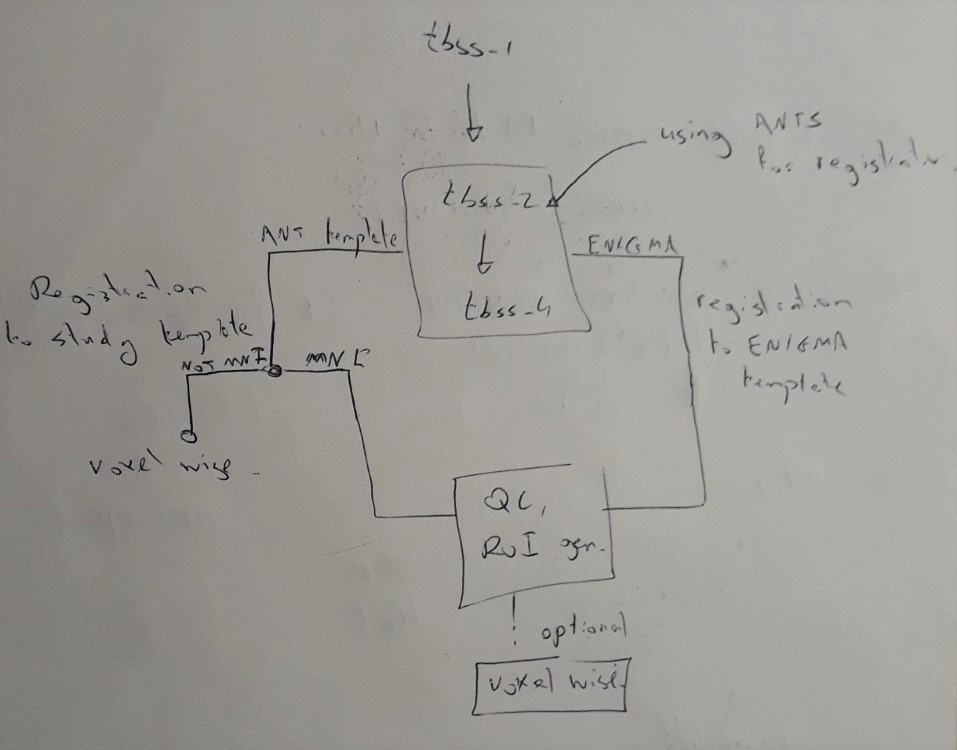 tbss-1
using ANTS
for registration
tbss-2
tbss-4
ANT template
ENIGMA
Registration
to study template
registration
to ENIGMA
template
NOT MNI
MNI
voxel wise
QC,
ROI gen.
optional
voxel wise